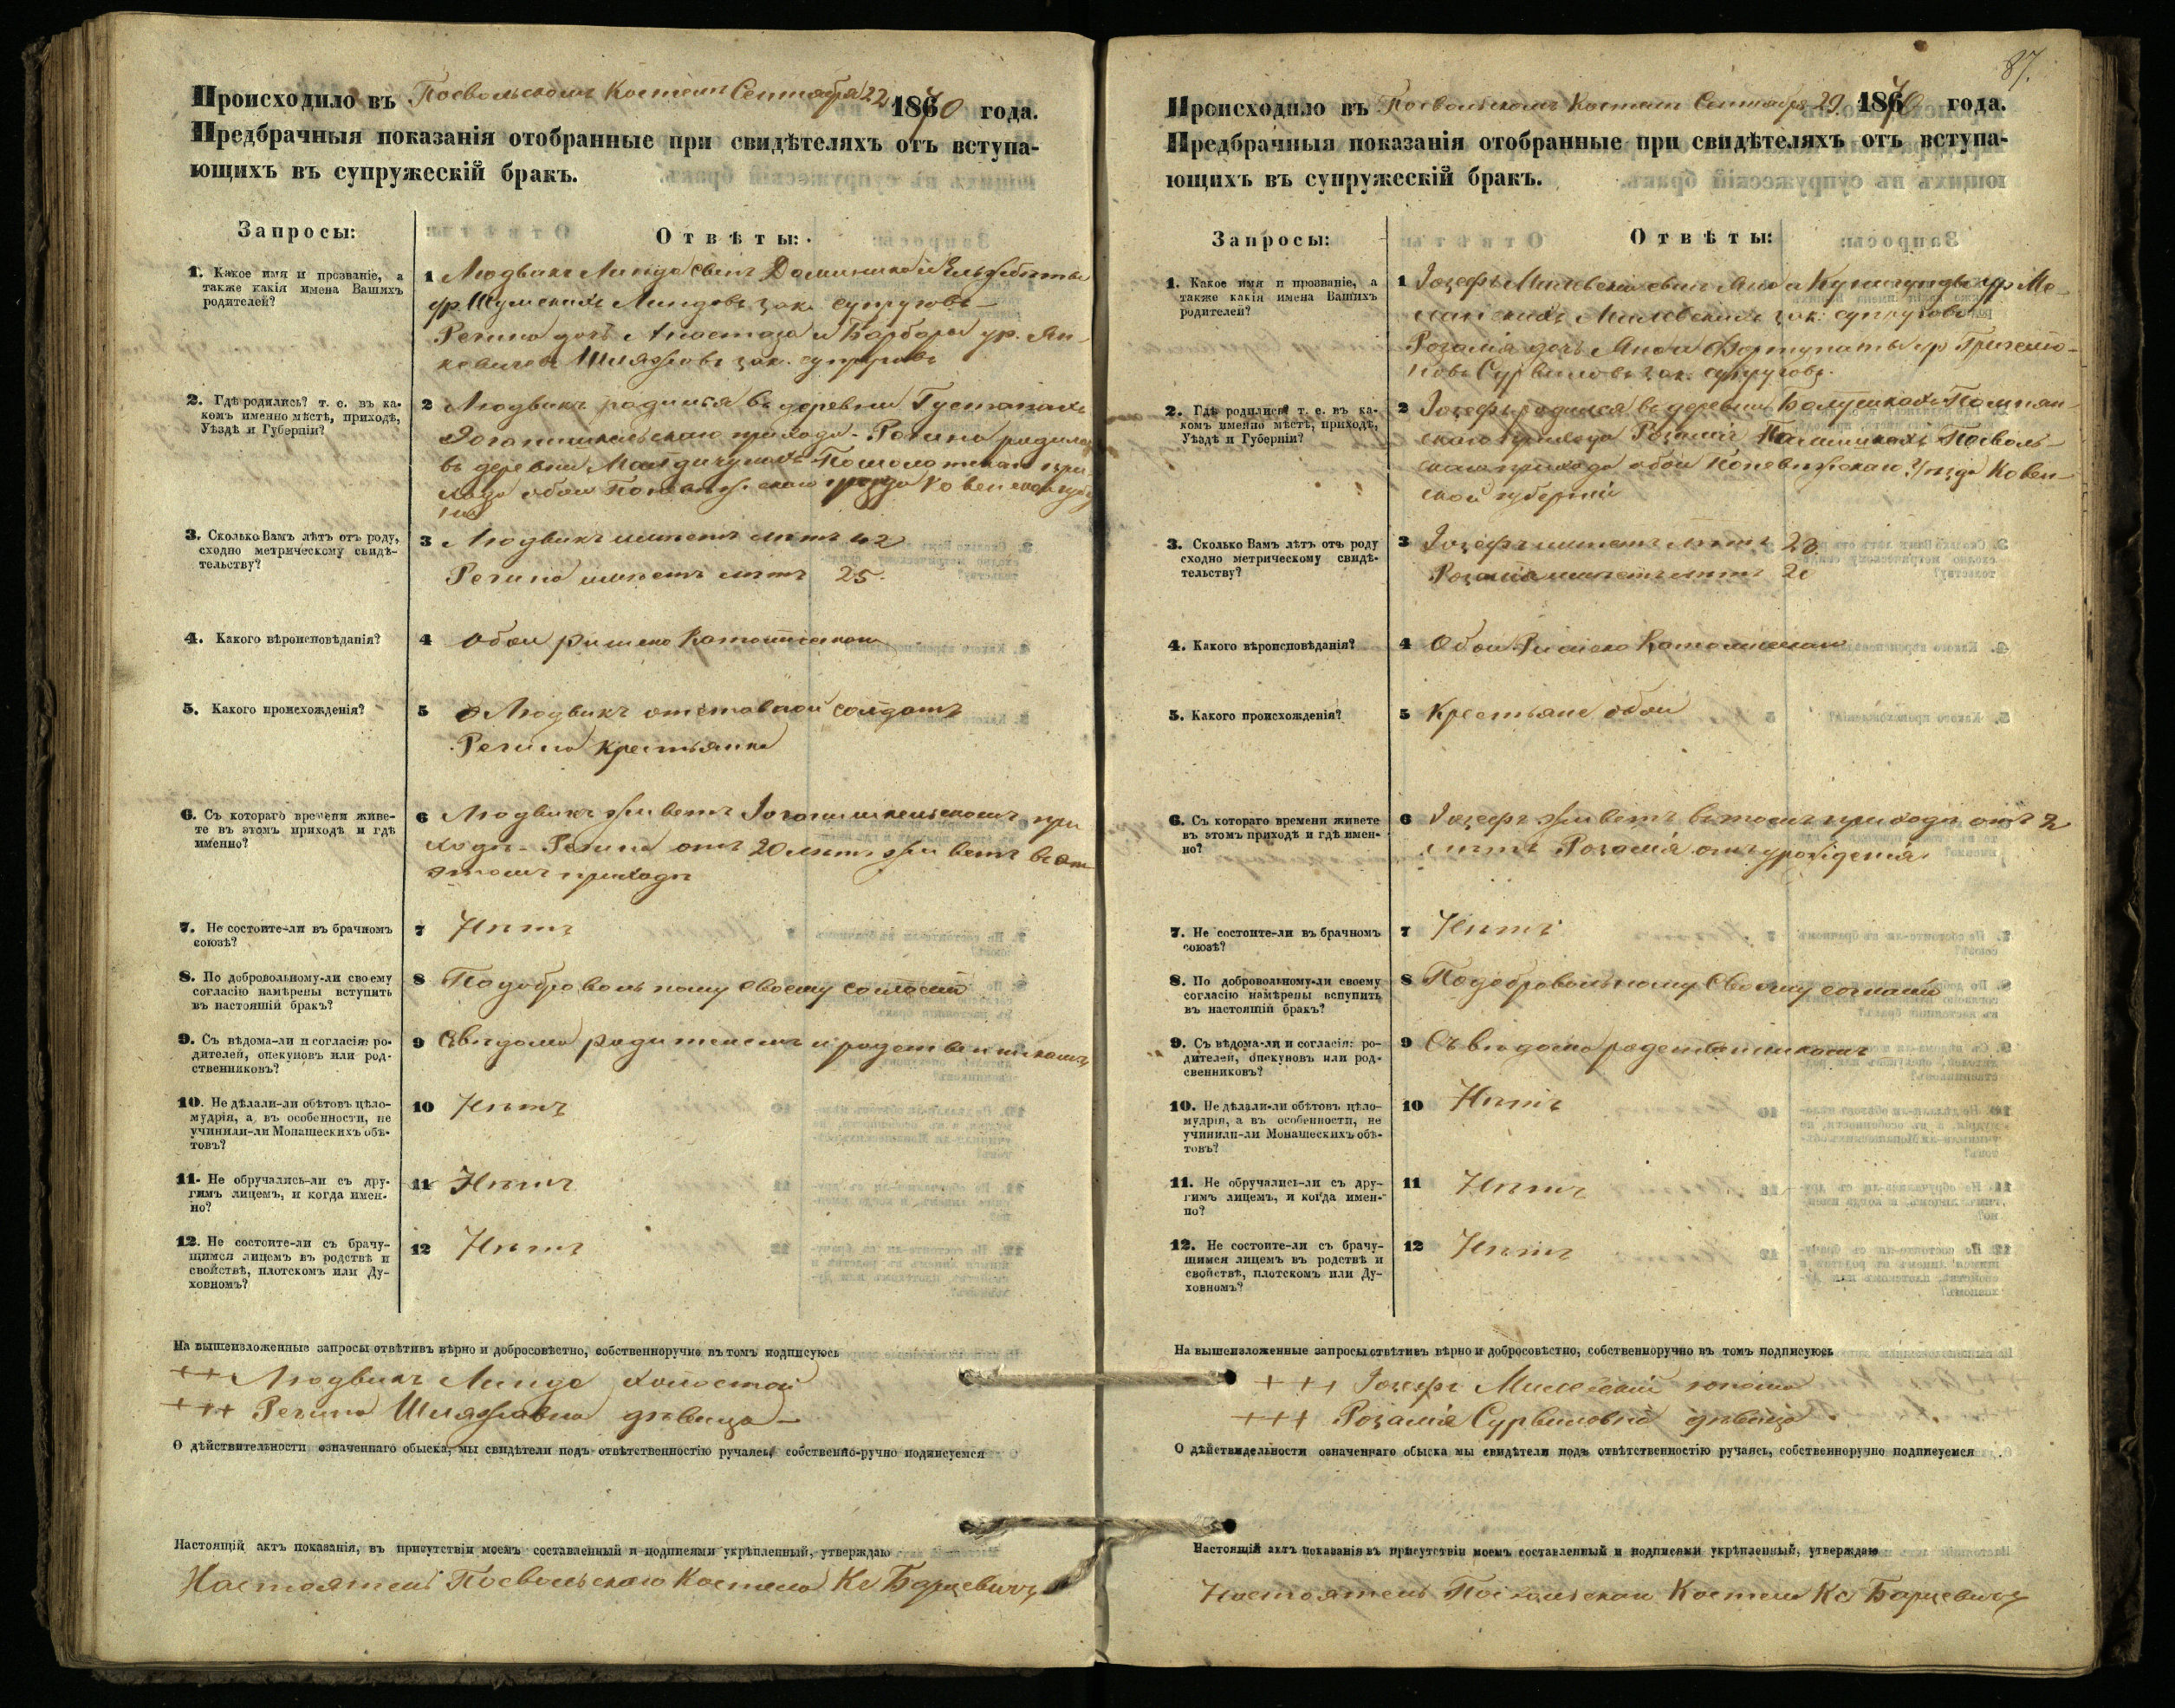 Происходило въ Посвольскомъ Костелѣ Сентября 22 1870 года.
Предбрачныя показанія отобранные при свидѣтеляхъ отъ вступа-
ющихъ въ супружескій бракъ.
Запросы:
Отвѣты:
1. Какое имя и прозваніе, а
также какія имена Вашихъ
родителей?
1 Людвикъ Линда сынъ Доминика и Ельжбеты
ур. Шумскихъ Линдовъ зак. супруговъ
Регина дочь Анастаза и Барбары ур. Ян-
кевичовъ Шляжовъ зак. супруговъ
2. Гдѣ родились? т. е. въ ка-
комъ именно мѣстѣ, приходѣ,
Уѣздѣ и Губерніи?
2 Людвикъ родился въ деревни
прихода - Регина родилась
въ деревни при-
хода обои Поневѣж. скаго уѣзда Ковенской губер
ніи
3. Сколько Вамъ лѣтъ отъ роду,
сходно метрическому свидѣ-
тельству?
3 Людвикъ имѣетъ лѣтъ 42
Регина имѣетъ лѣтъ 25.
4. Какого вѣроисповѣданія?
4 Обои Римско Католическаго
5. Какого происхожденія?
5 Людвикъ отставной солдатъ
Регина крестьянка
6. Съ котораго времени живе-
те въ этомъ приходѣ и гдѣ
именно?
6 Людвикъ живетъ при
ходѣ - Регина отъ 20 лѣтъ живетъ въ
этомъ приходѣ
7. Не состоите-ли въ брачномъ
союзѣ?
7 Нѣтъ
8. По добровольному-ли своему
согласію намѣрены вступить
въ настоящій бракъ?
8 По добровольному своему согласію
9. Съ вѣдома-ли и согласія ро-
дителей, опекуновъ или род-
ственниковъ?
9 Свѣдома родителемъ и родственникомъ
10. Не дѣлали-ли обѣтовъ цѣло-
мудрія, а въ особенности, не
учинили-ли Монашескихъ обѣ-
товъ?
10 Нѣтъ
11. Не обручались-ли съ дру-
гимъ лицемъ, и когда имен-
но?
11 Нѣтъ
12. Не состоите-ли съ брачу-
щимся лицемъ въ родствѣ и
свойствѣ, плотскомъ или Ду-
ховномъ?
12 Нѣтъ
На вышеизложенные запросы отвѣтивъ вѣрно и добросовѣстно, собственноручно въ томъ подписуюсь
+++ Людвикъ Линда холостой
+++ Регина Шляжовна дѣвица
О дѣйствительности означеннаго обыска, мы свидѣтели подъ отвѣтственностію ручаясь, собственно-ручно подписуемся
Настоящій актъ показанія, въ присутствіи моемъ составленный и подписями укрѣпленный, утверждаю
Настоятель Посвольскаго Костела Кс Барцевичъ
87.
Происходило въ Посвольскомъ Костелѣ Сентября 29 1870 года.
Предбрачныя показанія отобранные при свидѣтеляхъ отъ вступа-
ющихъ въ супружескій бракъ.
Запросы:
Отвѣты:
1. Какое имя и прозваніе, а
также какія имена Вашихъ
родителей?
1 Іозефъ Милевскій сынъ Яна и Кунегунды ур
Милевскихъ зак. супруговъ
Розалія дочь Яна и Фортунаты ур
Сурвиловъ зак. супруговъ.
2. Гдѣ родились? т. е. въ ка-
комъ именно мѣстѣ, приходѣ,
Уѣздѣ и Губерніи?
2 Іозефъ родился въ деревни
скаго прихода Розалія Посволь-
скаго прихода обои Поневѣжскаго Уѣзда Ковен-
ской губерніи
3. Сколько Вамъ лѣтъ отъ роду
сходно метрическому свидѣ-
тельству?
3 Іозефъ имѣетъ лѣтъ
Розалія имѣетъ лѣтъ
4. Какого вѣроисповѣданія?
4 Обои Римско Католическаго
5. Какого происхожденія?
5 Крестьяне обои
6. Съ котораго времени живете
въ этомъ приходѣ и гдѣ имен-
но?
6 Іозефъ живетъ въ томъ приходѣ отъ 2
лѣтъ Розалія отъ урожденія.
7. Не состоите-ли въ брачномъ
союзѣ?
7 Нѣтъ
8. По добровольному-ли своему
согласію намѣрены вспупить
въ настоящій бракъ?
8 По добровольному Своему согласію
9. Съ вѣдома-ли и согласія: ро-
дителей, опекуновъ или род-
свенниковъ?
9 Съ вѣдома родственникомъ
10. Не дѣлали-ли обѣтовъ цѣло-
мудрія, а въ особенности, не
учинили-ли Монашескихъ обѣ-
товъ?
10 Нѣтъ
11. Не обручались-ли съ дру-
гимъ лицемъ, и когда имен-
но?
11 Нѣтъ
12. Не состоите-ли съ брачу-
щимся лицемъ въ родствѣ и
свойствѣ, плотскомъ или Ду-
ховномъ?
12 Нѣтъ
На вышеизложенные запросы отвѣтивъ вѣрно и добросовѣстно, собственноручно въ томъ подписуюсь
+++ Іозефъ Милевскій юноша
+++ Розалія Сурвиловна дѣвица
О дѣйствидельности означеннаго обыска мы свидѣтели подъ отвѣтственностію ручаясь, собственноручно подписуемся
Настоящій актъ показанія въ присутствіи моемъ составленный и подписями укрѣпленный, утверждаю
Настоятель Посвольскаго Костела Кс Барцевичъ